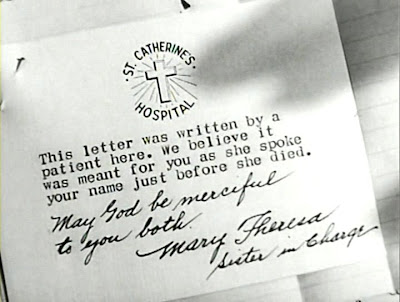 ST. CATHERINE'S
HOSPITAL
This letter was written by a
patient here. We believe it
was meant for you as she spoke
your name just before she died.
May God be merciful
to you both.
Mary Theresa
sister in Charge